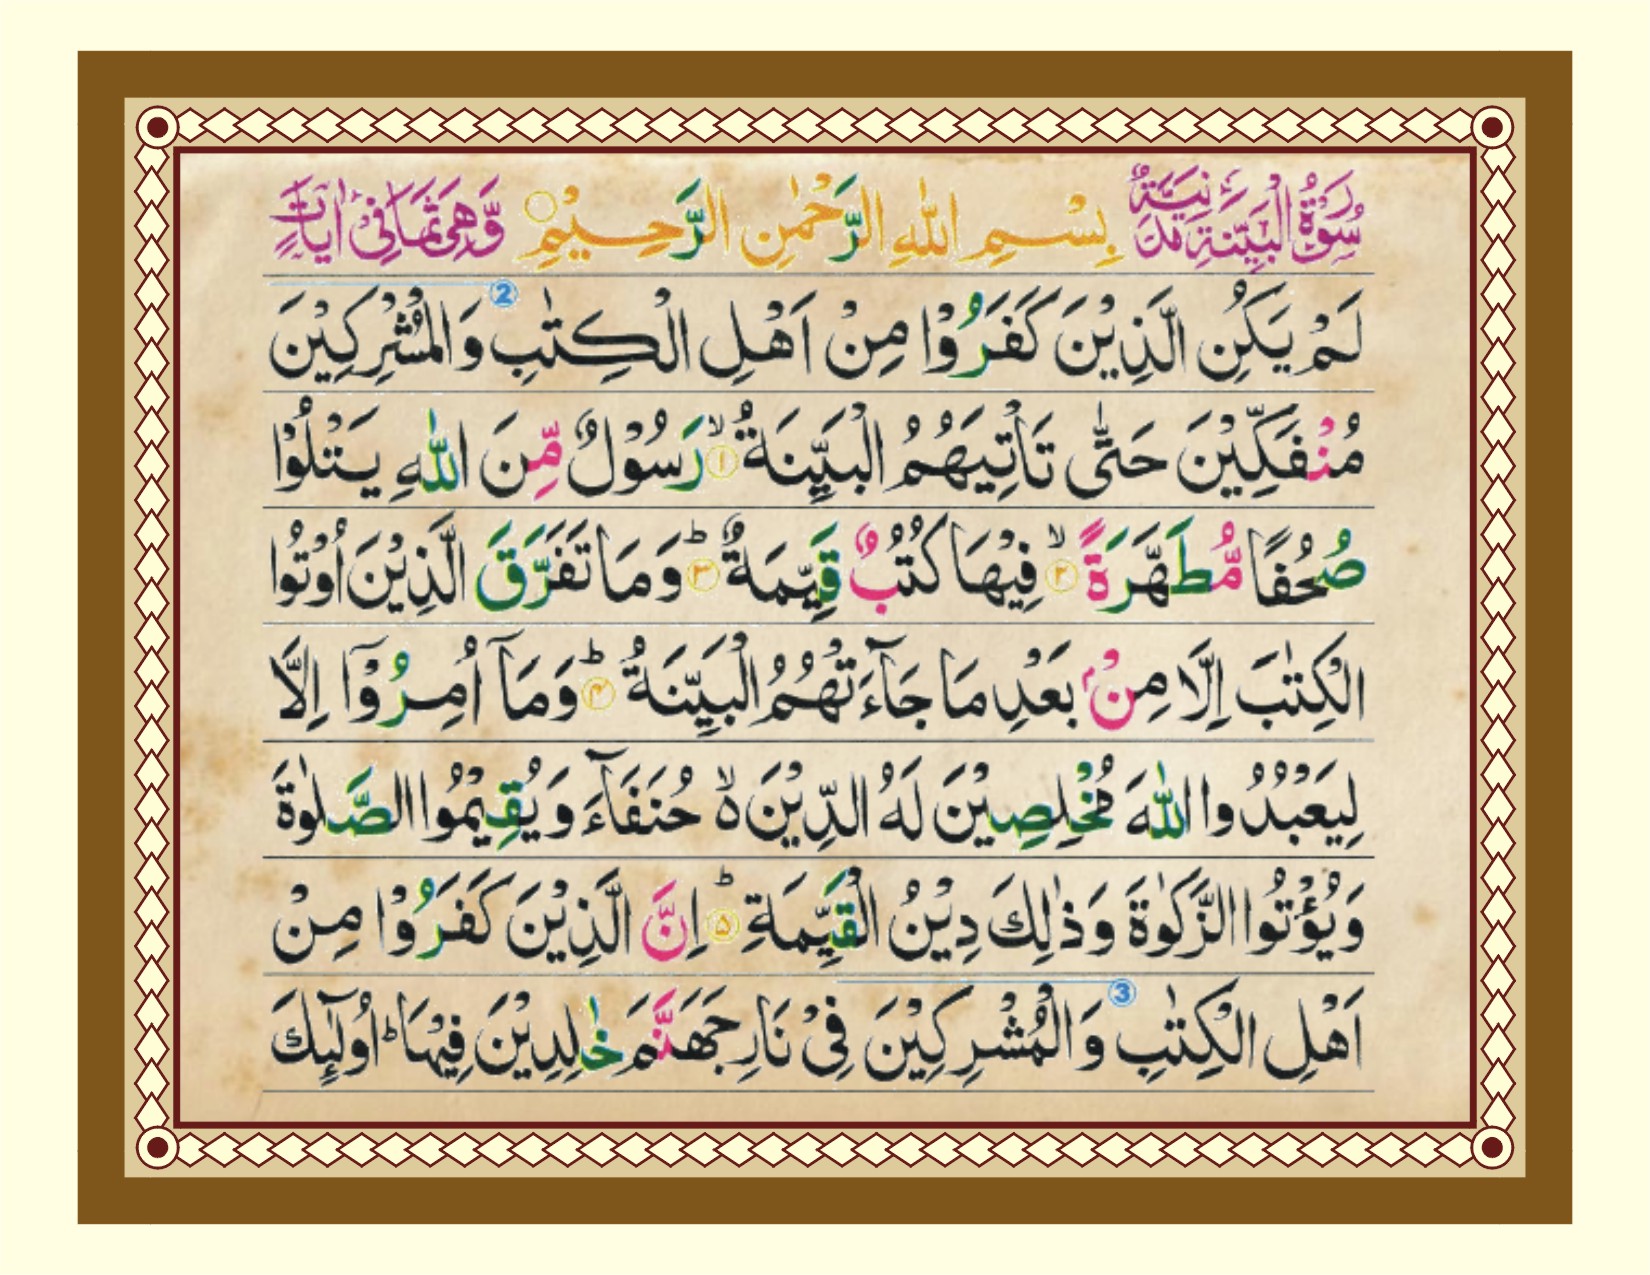 سُوْرَةُ الْبَيِّنَةِ مَدَنِيَّةٌ بِسْمِ اللهِ الرَّحْمٰنِ الرَّحِيْمِ ○ وَّهِىَ ثَمَانِىْ اٰيَاتٍ
لَمْ يَكُنِ الَّذِيْنَ كَفَرُوْا مِنْ اَهْلِ الْكِتٰبِ 2 وَالْمُشْرِكِيْنَ
مُنْفَكِّيْنَ حَتّٰى تَاْتِيَهُمُ الْبَيِّنَةُ ۙ ۱ رَسُوْلٌ مِّنَ اللّٰهِ يَتْلُوْا
صُحُفًا مُّطَهَّرَةً ۙ ۲ فِيْهَا كُتُبٌ قَيِّمَةٌ ؕ ۳ وَمَا تَفَرَّقَ الَّذِيْنَ اُوْتُوا
الْكِتٰبَ اِلَّا مِنْۢ بَعْدِ مَا جَآءَتْهُمُ الْبَيِّنَةُ ؕ ۴ وَمَآ اُمِرُوْٓا اِلَّا
لِيَعْبُدُوا اللّٰهَ مُخْلِصِيْنَ لَهُ الدِّيْنَ ۬ۙ حُنَفَآءَ وَيُقِيْمُوا الصَّلٰوةَ
وَيُؤْتُوا الزَّكٰوةَ وَذٰلِكَ دِيْنُ الْقَيِّمَةِ ؕ ۵ اِنَّ الَّذِيْنَ كَفَرُوْا مِنْ
اَهْلِ الْكِتٰبِ 3 وَالْمُشْرِكِيْنَ فِىْ نَارِ جَهَنَّمَ خٰلِدِيْنَ فِيْهَا ؕ اُولٰٓئِكَ